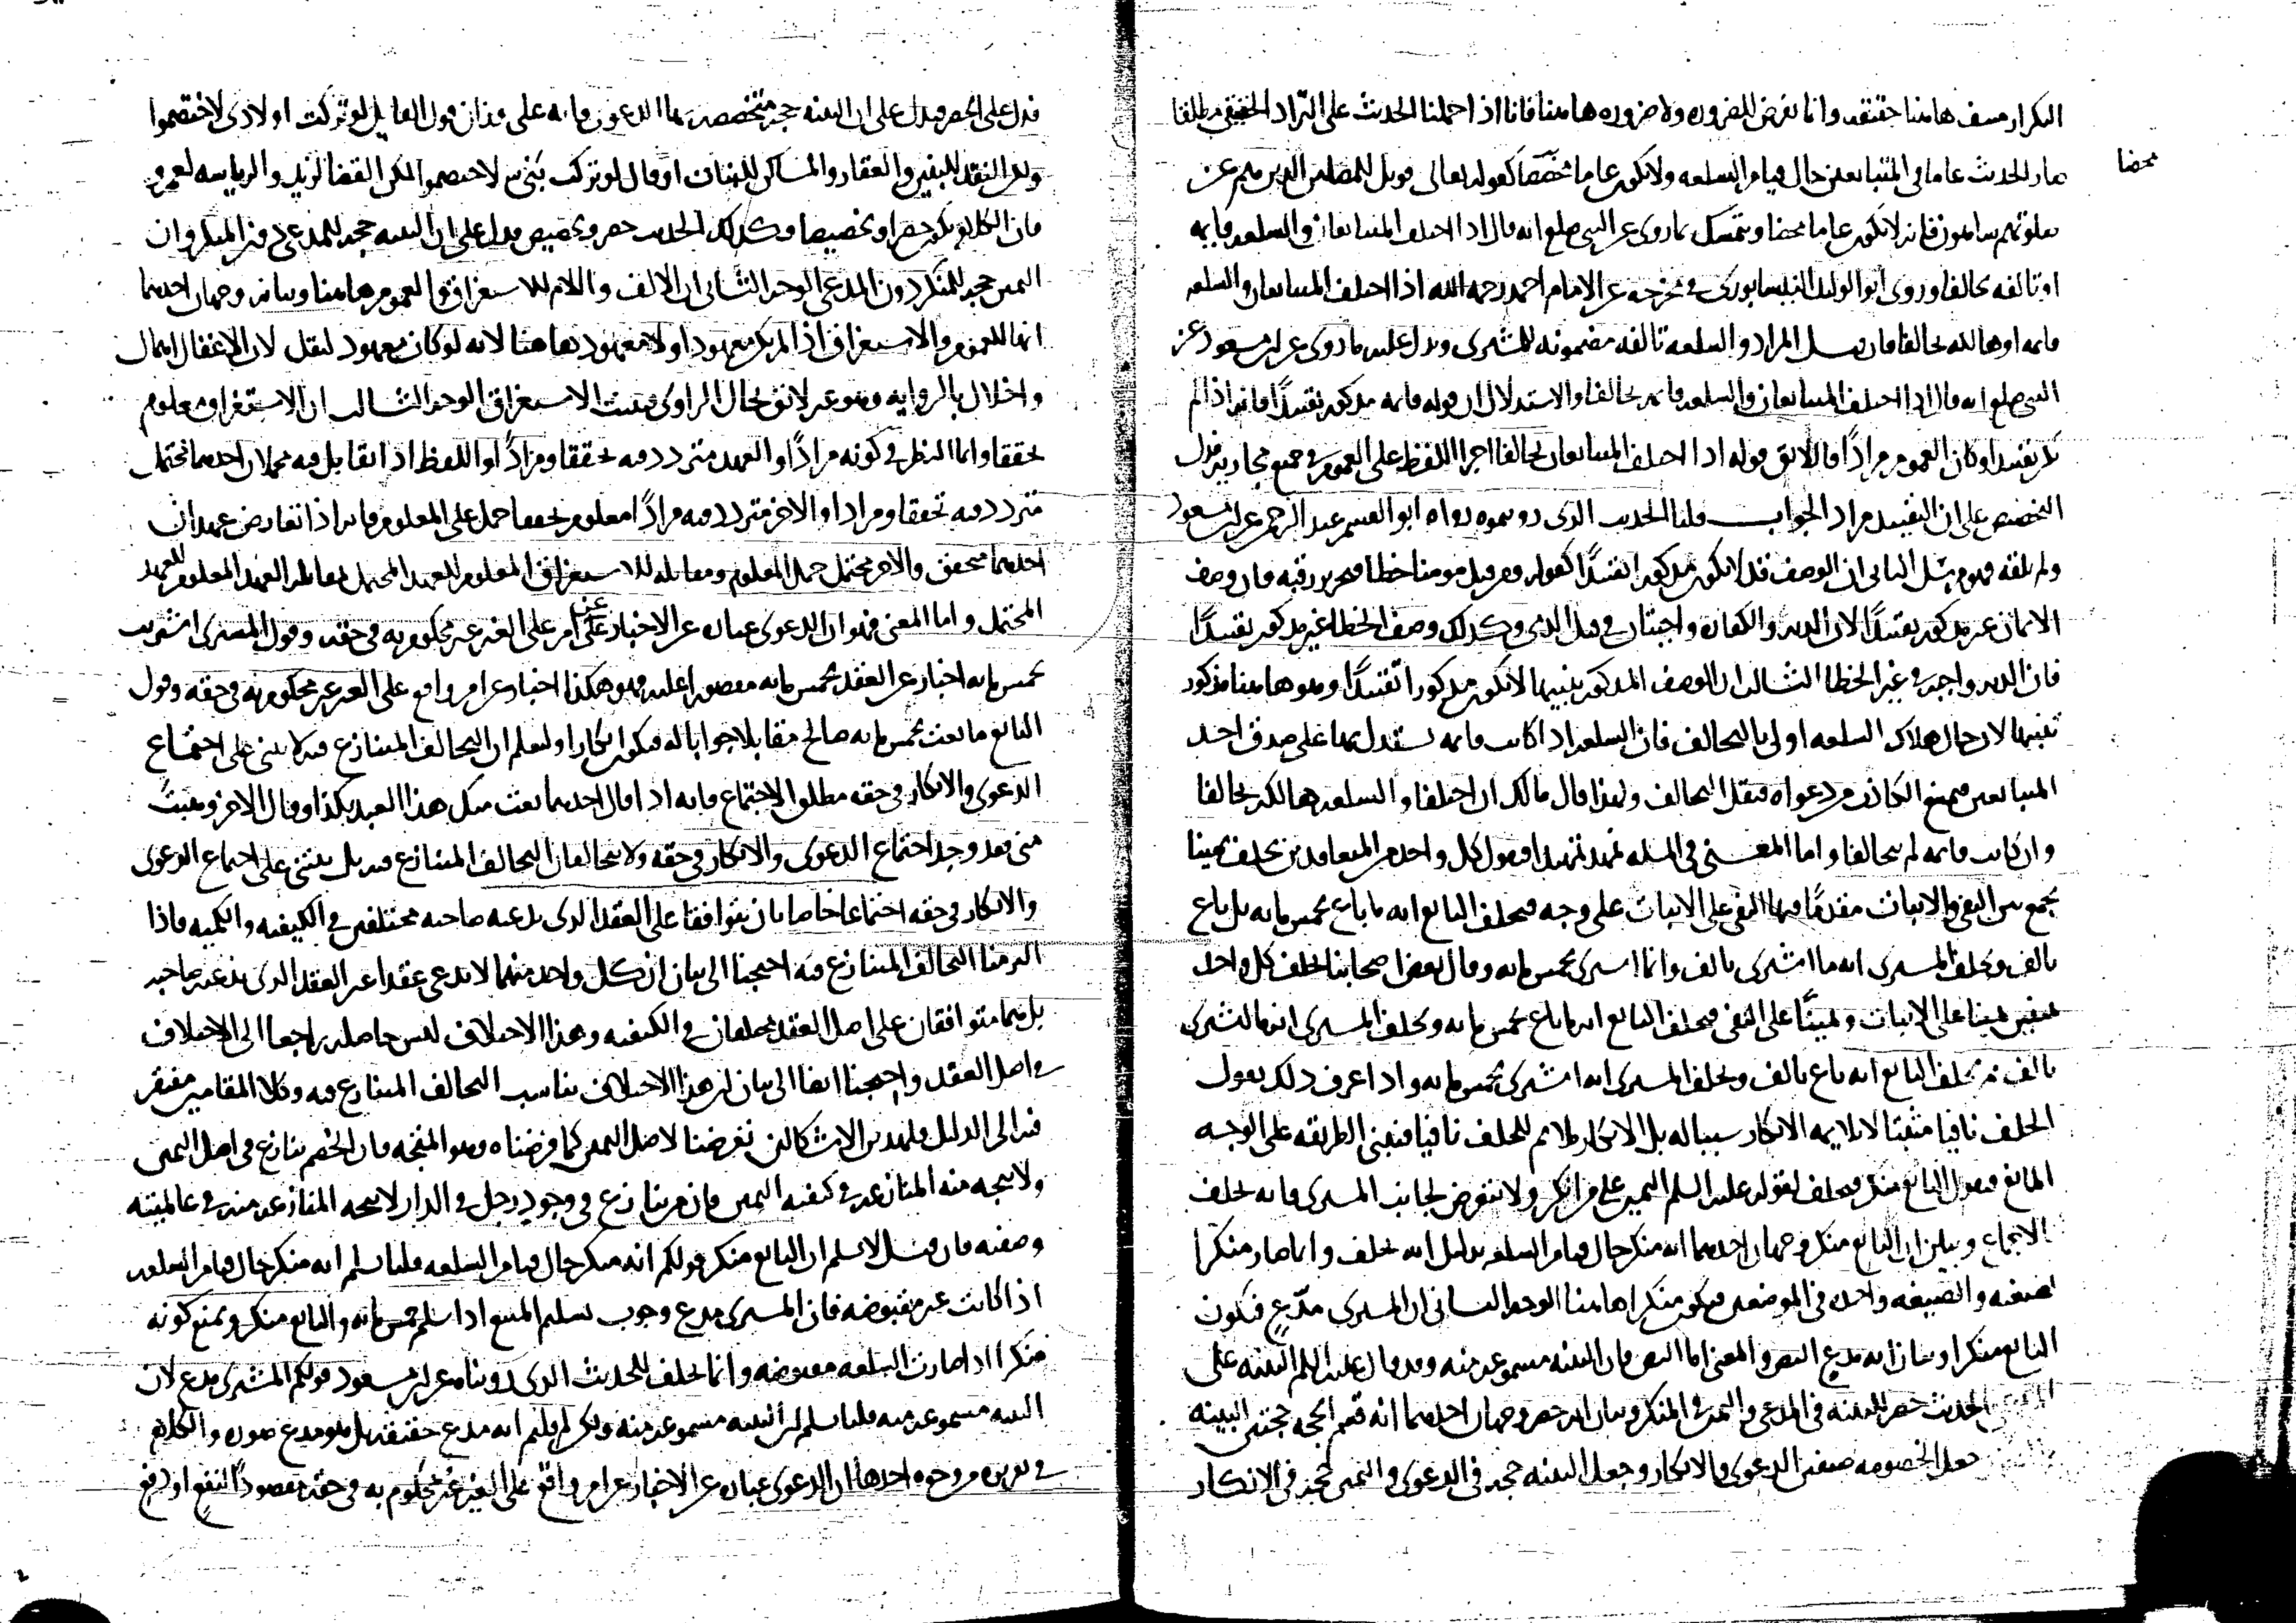 التكرار منتف هاهنا حقيقة وانما نفرض للضرورة ولا ضرورة هاهنا فانا اذا حملنا الحديث على التراد الحقيقي مطلقا
صار الحديث عاما في المتبايعين حال قيام السلعة ولا يكون عاما مخصصا كقوله تعالى فويل للمصلين الذين هم عن
محضا
صلوتهم ساهون فانه لا يكون عاما محضا ويتمسك بما روى عن النبي صلعم انه قال اذا اختلف المتبايعان والسلعة قايمة
او تالفة تحالفا وروى ابو الوليد النيسابوري في مخرجه عن الامام احمد رحمه الله اذا اختلف المتبايعان والسلعة
قايمة او هالكة تحالفا فان قيل المراد والسلعة تالفة مضمونة للمشتري ويدل عليه ما روى عن ابن مسعود عن
النبي صلعم انه قال اذا اختلف المتبايعان والسلعة قايمة تحالفا والاستدلال ان قوله قايمة مذكور تقييدا فانه اذا لم
يكن تقييدا وكان العموم مرادا فاللائق قوله اذا اختلف المتبايعان تحالفا اجرا اللفظ على العموم في جميع مجاريه فدل
التخصيص على ان التقييد مراد الجواب قلنا الحديث الذي رويتموه رواه ابو القسم عبد الرحمن عن ابن مسعود
ولم يلقه فهو مرسل الثاني ان الوصف قد لا يكون مذكورا تقييدا كقوله ومن قتل مومنا خطا فتحرير رقبة فان وصف
الايمان غير مذكور تقييدا لان الدية والكفارة واجبتان في قتل الذمي وكذلك وصف الخطا غير مذكور تقييدا
فان الدية واجبة في غير الخطا الثالث ان الوصف المذكور تنبيها لا يكون مذكورا تقييدا وهو هاهنا مذكور
تنبيها لان حال هلاك السلعة اولى بالتحالف فان السلعة اذا كانت قايمة يستدل بها على صدق احد
المتبايعين فيمتنع الكاذب من دعواه فيقل التحالف ولهذا قال مالك ان اختلفا والسلعة هالكة تحالفا
وان كانت قايمة لم يتحالفا واما المعنى في المسلة نمهد تمهيدا فنقول كل واحد من المتعاقدين يحلف يمينا
يجمع بين النفي والاثبات مقدما فيها النفي على الاثبات على وجه فيحلف البايع انه ما باع بخمس مايه بل باع
بالف ويحلف المشتري انه ما اشترى بالف وانما اشترى بخمس مايه وقال بعض اصحابنا يحلف كل واحد
يمينين يمينا على الاثبات ويمينا على النفي فيحلف البايع انه ما باع بخمس مايه ويحلف المشتري انه ما اشترى
بالف ثم يحلف البايع انه باع بالف ويحلف المشتري انه اشترى بخمس مايه واذا عرف ذلك نقول
الحلف نافيا مثبتا لا يلايمه الانكار سببا له بل الانكار ملايم للحلف نافيا فنبني الطريقة على الوجه
المانع فنقول البايع منكر فيحلف لقوله عليه السلم اليمين على من انكر ولا نتعرض لجانب المشتري فانه يحلف
الاجماع وبيان ان البايع منكر وجهان احدهما انه منكر حال قيام السلعة بدليل انه يحلف وانما صار منكرا
لصيغته والصيغة واحدة في الموضعين فيكون منكرا هاهنا الوجه الثاني ان المشتري مدع فيكون
البايع منكرا وبيان انه مدع النص والمعنى اما النص فان البينة مسموعة منه وقد قال عليه السلم البينة على
الحديث حصر للبينة في المدعي واليمين في المنكر وبيان انه حصر وجهان احدهما انه قسم الحجة حجتين البينة
جعل الخصومة صنفين الدعوى والانكار وجعل البينة حجة في الدعوى واليمين حجة في الانكار
فدل على الحصر فيدل على ان البينة حجة متخصصة بما الدعوى فانه على وزان قول القايل لو تركت اولادي لاختصموا
ولكن النقد للبنين والعقار والمساكن للبنات او قال لو تركت بنى لاختصموا لكن القضا لزيد والرياسة لعمرو
فان الكلام يكون حصرا وتخصيصا وكذلك الحديث حصر وتخصيص فدل على ان البينة حجة للمدعي دون المنكر وان
اليمين حجة للمنكر دون المدعي الوجه الثاني ان الالف واللام للاستغراق والعموم هاهنا وبيانه وجهان احدهما
انها للعموم والاستغراق اذا لم يكن معهود اولا معهود هاهنا لانه لو كان معهود لنقل لان الاغفال اهمال
واخلال بالرواية وهو غير لائق بحال الراوي فيثبت الاستغراق الوجه الثالث ان الاستغراق معلوم
تحققا وانما النظر في كونه مرادا والعهد متردد فيه تحققا ومرادا واللفظ اذا تقابل فيه محملان احدهما محتمل
متردد فيه تحققا ومرادا والاخر متردد فيه مرادا معلوم تحققا حمل على المعلوم فانه اذا تعارض عهدان
احدهما متحقق والاخر محتمل حمل المعلوم ومقابلة للاستغراق المعلوم للعهد المحتمل مقابلة العهد المعلوم للعهد
المحتمل واما المعنى فهو ان الدعوى عبارة عن الاخبار عن امر على الغير غير محكوم به في حقه وقول المشتري اشتريت
بخمس مايه اخبار عن العقد بخمس مايه مقصورا عليه فهو هكذا اخبار عن امر واقع على الغير غير محكوم به في حقه وقول
البايع ما بعت بخمس مايه صالح مقابلا جوابا له فيكون انكارا وليعلم ان التحالف المتنازع فيه لا يبنى على اجتماع
الدعوى والانكار في حقه مطلق الاجتماع فانه اذا قال احدهما بعت منك هذا العبد بكذا وقال الاخر وهبت
مني فقد وجد اجتماع الدعوى والانكار في حقه ولا يتحالفان التحالف المتنازع فيه بل يبتنى على اجتماع الدعوى
والانكار في حقه اجتماعا خاصا بان يتوافقا على العقد الذي يدعيه صاحبه مختلفين في الكيفية والكمية فاذا
الزمنا التحالف المتنازع فيه احتجنا الى بيان ان كل واحد منهما لا يدعي عقدا غير العقد الذي يدعيه صاحبه
بل هما متوافقان على اصل العقد مختلفان في الكيفية وهذا الاختلاف ليس حاصله راجعا الى الاختلاف
في اصل العقد واحتجنا ايضا الى بيان ان هذا الاختلاف يناسب التحالف المتنازع فيه وكلا المقامين مفتقر
فيه الى الدليل فلهذين الاشكالين تعرضنا لاصل اليمين كما فرضناه وهو المتجه فان الخصم ينازع في اصل اليمين
ولا يتجه منه المنازعة في كيفية اليمين فان من ينازع في وجود رجل في الدار لا يتجه المنازعة منه في عالميته
وصفته فان قيل لا نسلم ان البايع منكر قولكم انه منكر حال قيام السلعة قلنا نسلم انه منكر حال قيام السلعة
اذا كانت غير مقبوضة فان المشتري مدع وجوب تسليم المبيع اذا سلم خمس مايه والبايع منكر ويمنع كونه
منكرا اذا صارت السلعة مقبوضة وانما يحلف للحديث الذي رويناه عن ابن مسعود قولكم المشتري مدع لان
البينة مسموعة منه قلنا نسلم ان البينة مسموعة منه ولكن لم قلتم انه مدع حقيقة بل هو مدع صورة والكلام
في تقريره من وجوه احدها ان الدعوى عبارة عن الاخبار عن امر واقع على الغير غير محكوم به في حقه مقصودا لنفع او دفع